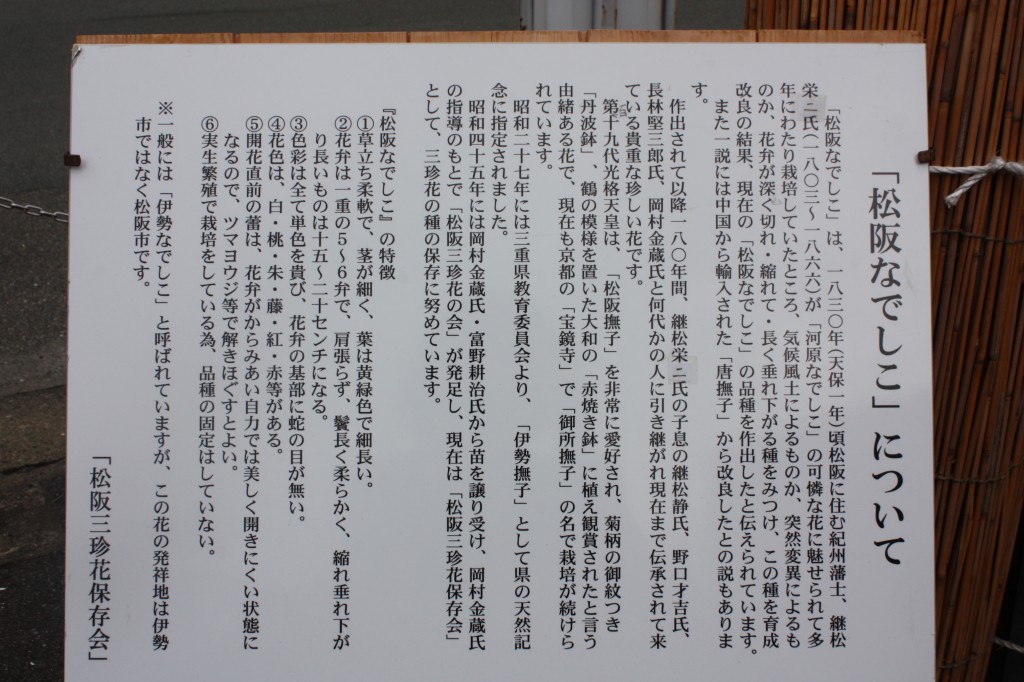 「松阪なでしこ」について
「松阪なでしこ」は、一八三〇年(天保一年)頃松阪に住む紀州藩士、継松
栄二氏(一八〇三〜一八六六)が「河原なでしこ」の可憐な花に魅せられて多
年にわたり栽培していたところ、気候風土によるものか、突然変異によるも
のか、花弁が深く切れ・縮れて・長く垂れ下がる種をみつけ、この種を育成
改良の結果、現在の「松阪なでしこ」の品種を作出したと伝えられています。
また一説には中国から輸入された「唐撫子」から改良したとの説もありま
す。
作出されて以降一八〇年間、継松栄二氏の子息の継松静氏、野口才吉氏、
長林堅三郎氏、岡村金蔵氏と何代かの人に引き継がれ現在まで伝承されて来
ている貴重な珍しい花です。
第百十九代光格天皇は、「松阪撫子」を非常に愛好され、菊柄の御紋つき
「丹波鉢」、鶴の模様を置いた大和の「赤焼き鉢」に植え観賞されたと言う
由緒ある花で、現在も京都の「宝鏡寺」で「御所撫子」の名で栽培が続けら
れています。
昭和二十七年には三重県教育委員会より、「伊勢撫子」として県の天然記
念に指定されました。
昭和四十五年には岡村金蔵氏・富野耕治氏から苗を譲り受け、岡村金蔵氏
の指導のもとで「松阪三珍花の会」が発足し、現在は「松阪三珍花保存会」
として、三珍花の種の保存に努めています。
『松阪なでしこ』の特徴
①草立ち柔軟で、茎が細く、葉は黄緑色で細長い。
②花弁は一重の5〜6弁で、肩張らず、鬢長く柔らかく、縮れ垂れ下が
り長いものは十五〜二十センチになる。
③色彩は全て単色を貴び、花弁の基部に蛇の目が無い。
④花色は、白・桃・朱・藤・紅・赤等がある。
⑤開花直前の蕾は、花弁がからみあい自力では美しく開きにくい状態に
なるので、ツマヨウジ等で解きほぐすとよい。
⑥実生繁殖で栽培をしている為、品種の固定はしていない。
※一般には「伊勢なでしこ」と呼ばれていますが、この花の発祥地は伊勢
市ではなく松阪市です。
「松阪三珍花保存会」